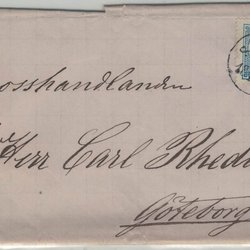 osshandlanden
Herr Carl Rhedi
Göteborg